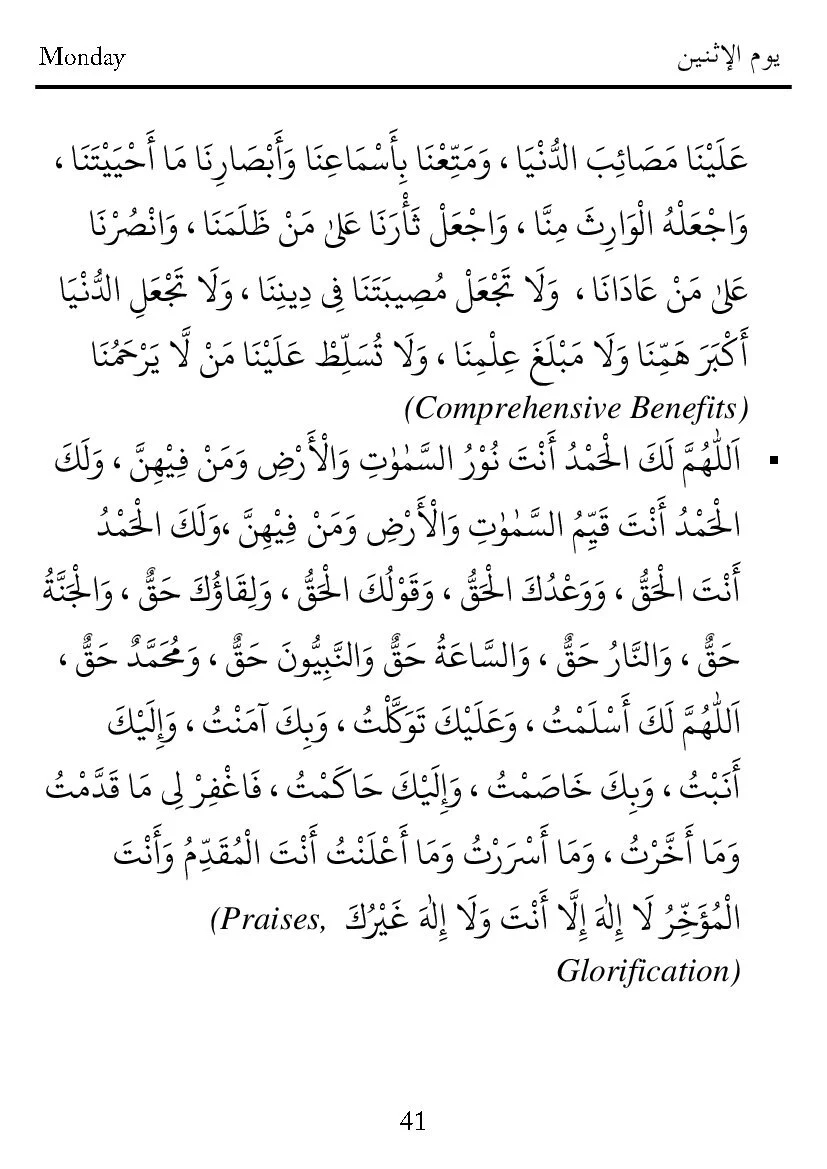 Monday يوم الإثنين
عَلَيْنَا مَصَائِبَ الدُّنْيَا ، وَمَتِّعْنَا بِأَسْمَاعِنَا وَأَبْصَارِنَا مَا أَحْيَيْتَنَا ،
وَاجْعَلْهُ الْوَارِثَ مِنَّا ، وَاجْعَلْ ثَأْرَنَا عَلىٰ مَنْ ظَلَمَنَا ، وَانْصُرْنَا
عَلىٰ مَنْ عَادَانَا ، وَلَا تَجْعَلْ مُصِيبَتَنَا فِى دِينِنَا ، وَلَا تَجْعَلِ الدُّنْيَا
أَكْبَرَ هَمِّنَا وَلَا مَبْلَغَ عِلْمِنَا ، وَلَا تُسَلِّطْ عَلَيْنَا مَنْ لَّا يَرْحَمُنَا
(Comprehensive Benefits)
▪ اَللّٰهُمَّ لَكَ الْحَمْدُ أَنْتَ نُوْرُ السَّمٰوٰتِ وَالْأَرْضِ وَمَنْ فِيْهِنَّ ، وَلَكَ
الْحَمْدُ أَنْتَ قَيِّمُ السَّمٰوٰتِ وَالْأَرْضِ وَمَنْ فِيْهِنَّ ،وَلَكَ الْحَمْدُ
أَنْتَ الْحَقُّ ، وَوَعْدُكَ الْحَقُّ ، وَقَوْلُكَ الْحَقُّ ، وَلِقَاؤُكَ حَقٌّ ، وَالْجَنَّةُ
حَقٌّ ، وَالنَّارُ حَقٌّ ، وَالسَّاعَةُ حَقٌّ وَالنَّبِيُّونَ حَقٌّ ، وَمُحَمَّدٌ حَقٌّ ،
اَللّٰهُمَّ لَكَ أَسْلَمْتُ ، وَعَلَيْكَ تَوَكَّلْتُ ، وَبِكَ آمَنْتُ ، وَإِلَيْكَ
أَنَبْتُ ، وَبِكَ خَاصَمْتُ ، وَإِلَيْكَ حَاكَمْتُ ، فَاغْفِرْ لِى مَا قَدَّمْتُ
وَمَا أَخَّرْتُ ، وَمَا أَسْرَرْتُ وَمَا أَعْلَنْتُ أَنْتَ الْمُقَدِّمُ وَأَنْتَ
الْمُؤَخِّرُ لَا إِلٰهَ إِلَّا أَنْتَ وَلَا إِلٰهَ غَيْرُكَ (Praises,
Glorification)
41